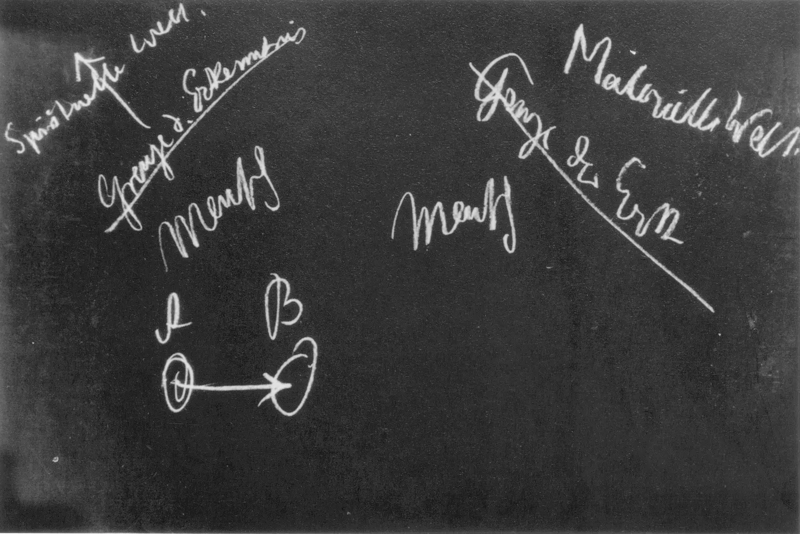 Spirituelle Welt.
Grenze d. Erkenntnis
Mensch
A B
Materielle Welt.
Grenze der Erk
Mensch